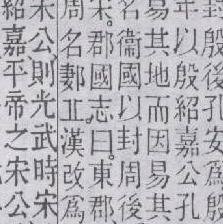 封殷後孔安爲
年以殷紹嘉公孔
易其地而因易其
名衞國以封周後
周宋。郡國志曰。東郡
名郪丘漢改爲
宋公則光武時宋
紹嘉平帝之宋公